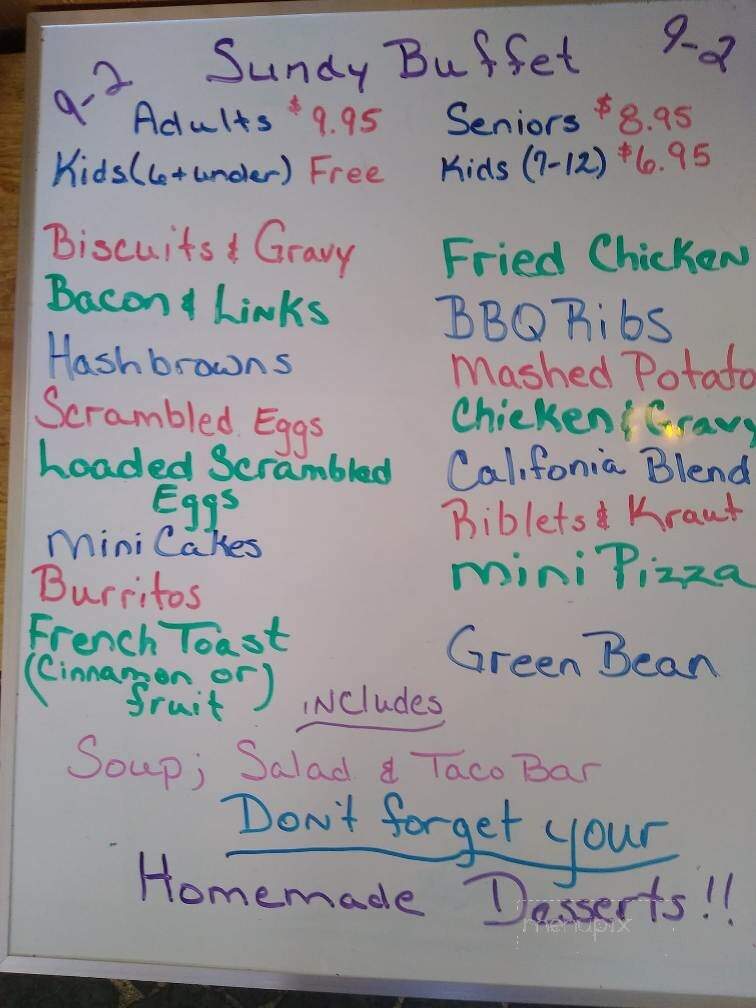 9-2 Sundy Buffet 9-2
Adults $9.95 Seniors $8.95
Kids (6 + under) Free Kids (7-12) $6.95
Biscuits & Gravy
Bacon & Links
Hashbrowns
Scrambled Eggs
Loaded Scrambled
Eggs
Mini Cakes
Burritos
French Toast
(Cinnamon or)
fruit
Fried Chicken
BBQ Ribs
Mashed Potato
Chicken & Gravy
Califonia Blend
Riblets & Kraut
mini Pizza
Green Bean
includes
Soup; Salad & Taco Bar
Don't forget your
Homemade Desserts!!
menupix